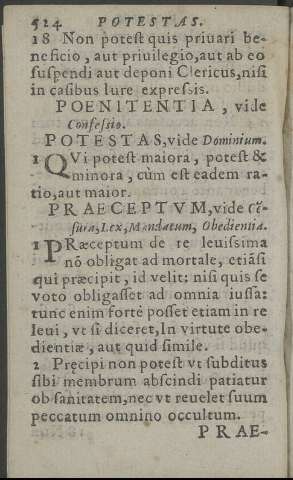 524 POTESTAS.
18 Non potest quis priuari be-
neficio, aut priuilegio, aut ab eo
suspendi aut deponi Clericus, nisi
in casibus Iure expressis.
POENITENTIA, vide
Confessio.
POTESTAS, vide Dominium.
1 QVi potest maiora, potest &
minora, cùm est eadem ra-
tio, aut maior.
PRAECEPTVM, vide Cẽ-
sura, Lex, Mandatum, Obedientia.
1 PRæceptum de re leuissima
nõ obligat ad mortale, etiãsi
qui præcipit, id velit: nisi quis se
voto obligasset ad omnia iussa:
tunc enim fortè posset etiam in re
leui, vt si diceret, In virtute obe-
dientiæ, aut quid simile.
2 Pręcipi non potest vt subditus
sibi membrum abscindi patiatur
ob sanitatem, nec vt reuelet suum
peccatum omnino occultum.
PRAE-